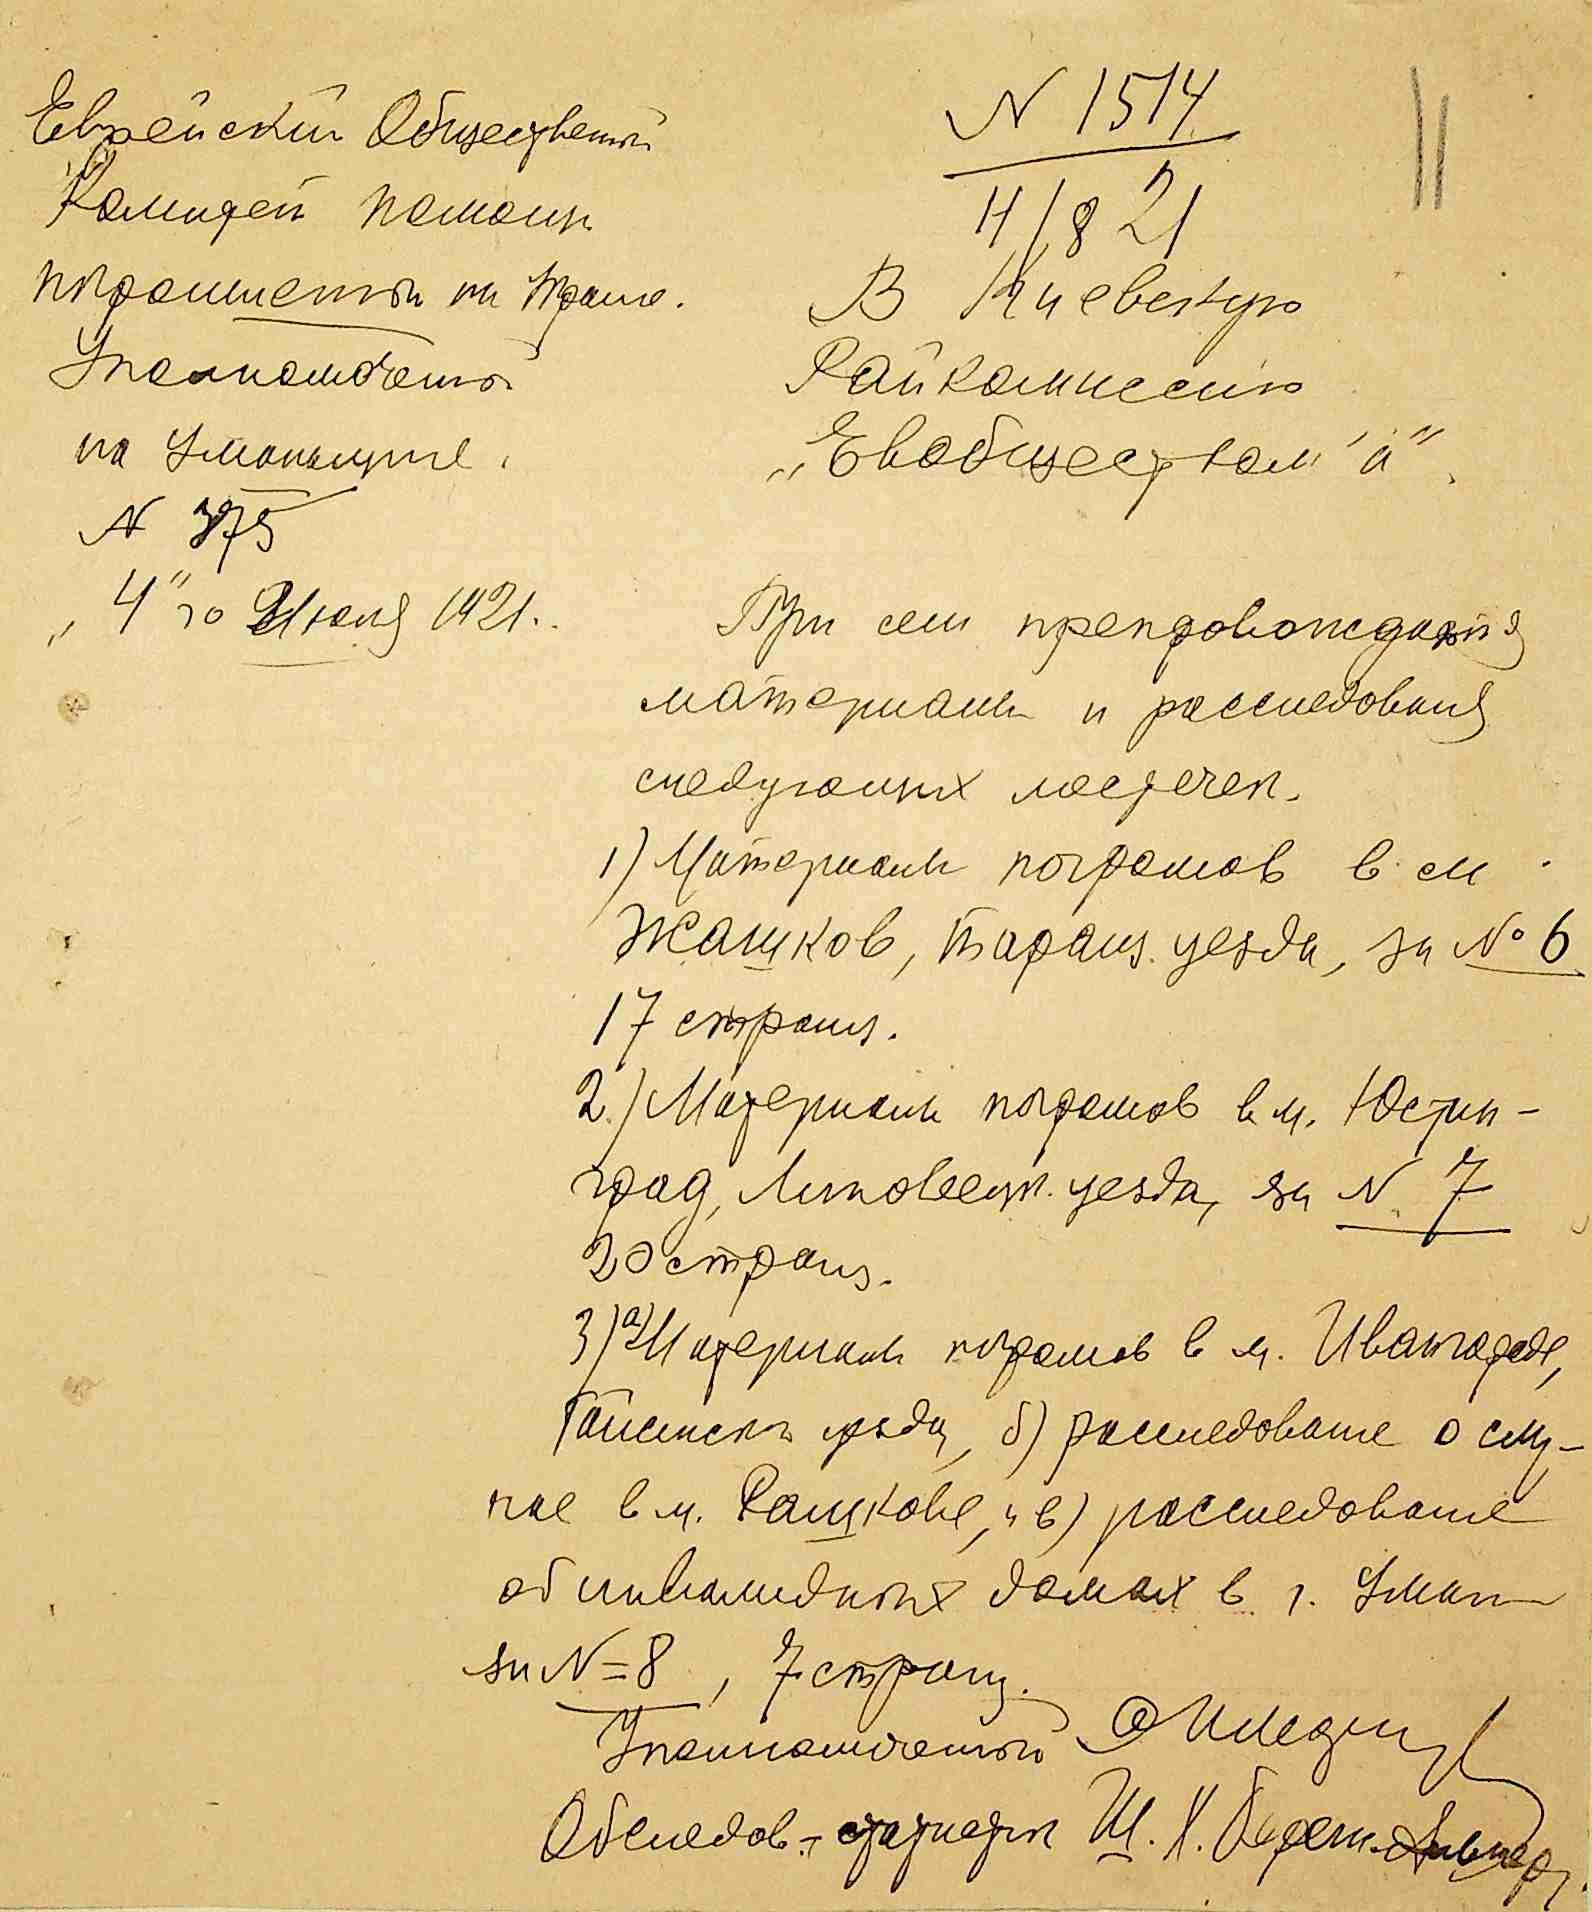 Еврейский Общественный
Комитет помощи
погромленным на Украине.
Уполномоченный
на Уманьщине.
N 375
"4" го Июля 1921.
N 1514
4/8 21
11
В Киевскую
Райкомиссию
„Евобщестком'а".
При сем препровождаются
материалы и расследования
следующих местечек.
1) Материалы погромов в м.
Жашков, Таращ. уезда, за № 6
17 страниц.
2) Материалы погромов в м. Юстин-
град, Липовецк. уезда, за N 7
20 страниц.
3) а) Материалы погромов в м. Ивангороде,
Гайсинск. уезда, б) расследование о слу-
чае в м. Рашкове, и в) расследование
об инвалидных домах в г. Умани
за N=8, 7 страниц.
Уполномоченный
Обследов.-статистик Ш. К.